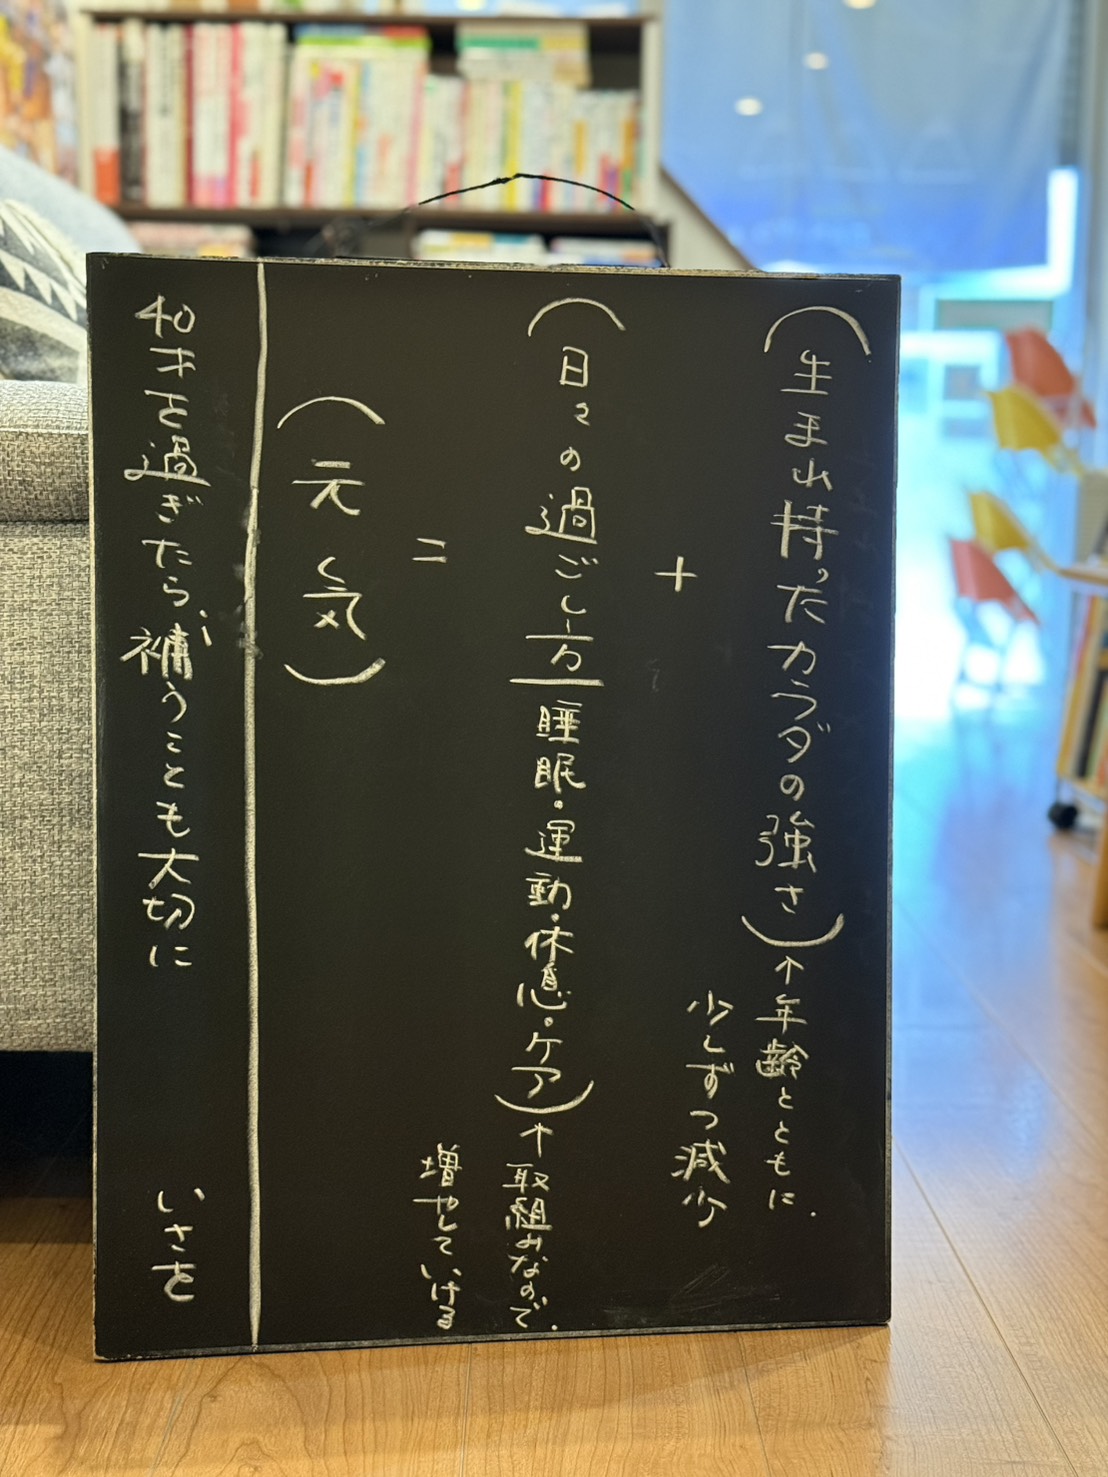 (生まれ持ったカラダの強さ)↑年齢とともに、
少しずつ減少
+
(日々の過ごし方|睡眠・運動・休息・ケア)↑取組みなので、
増やしていける
=
(元気)
40才を過ぎたら、補うことも大切に
いさを